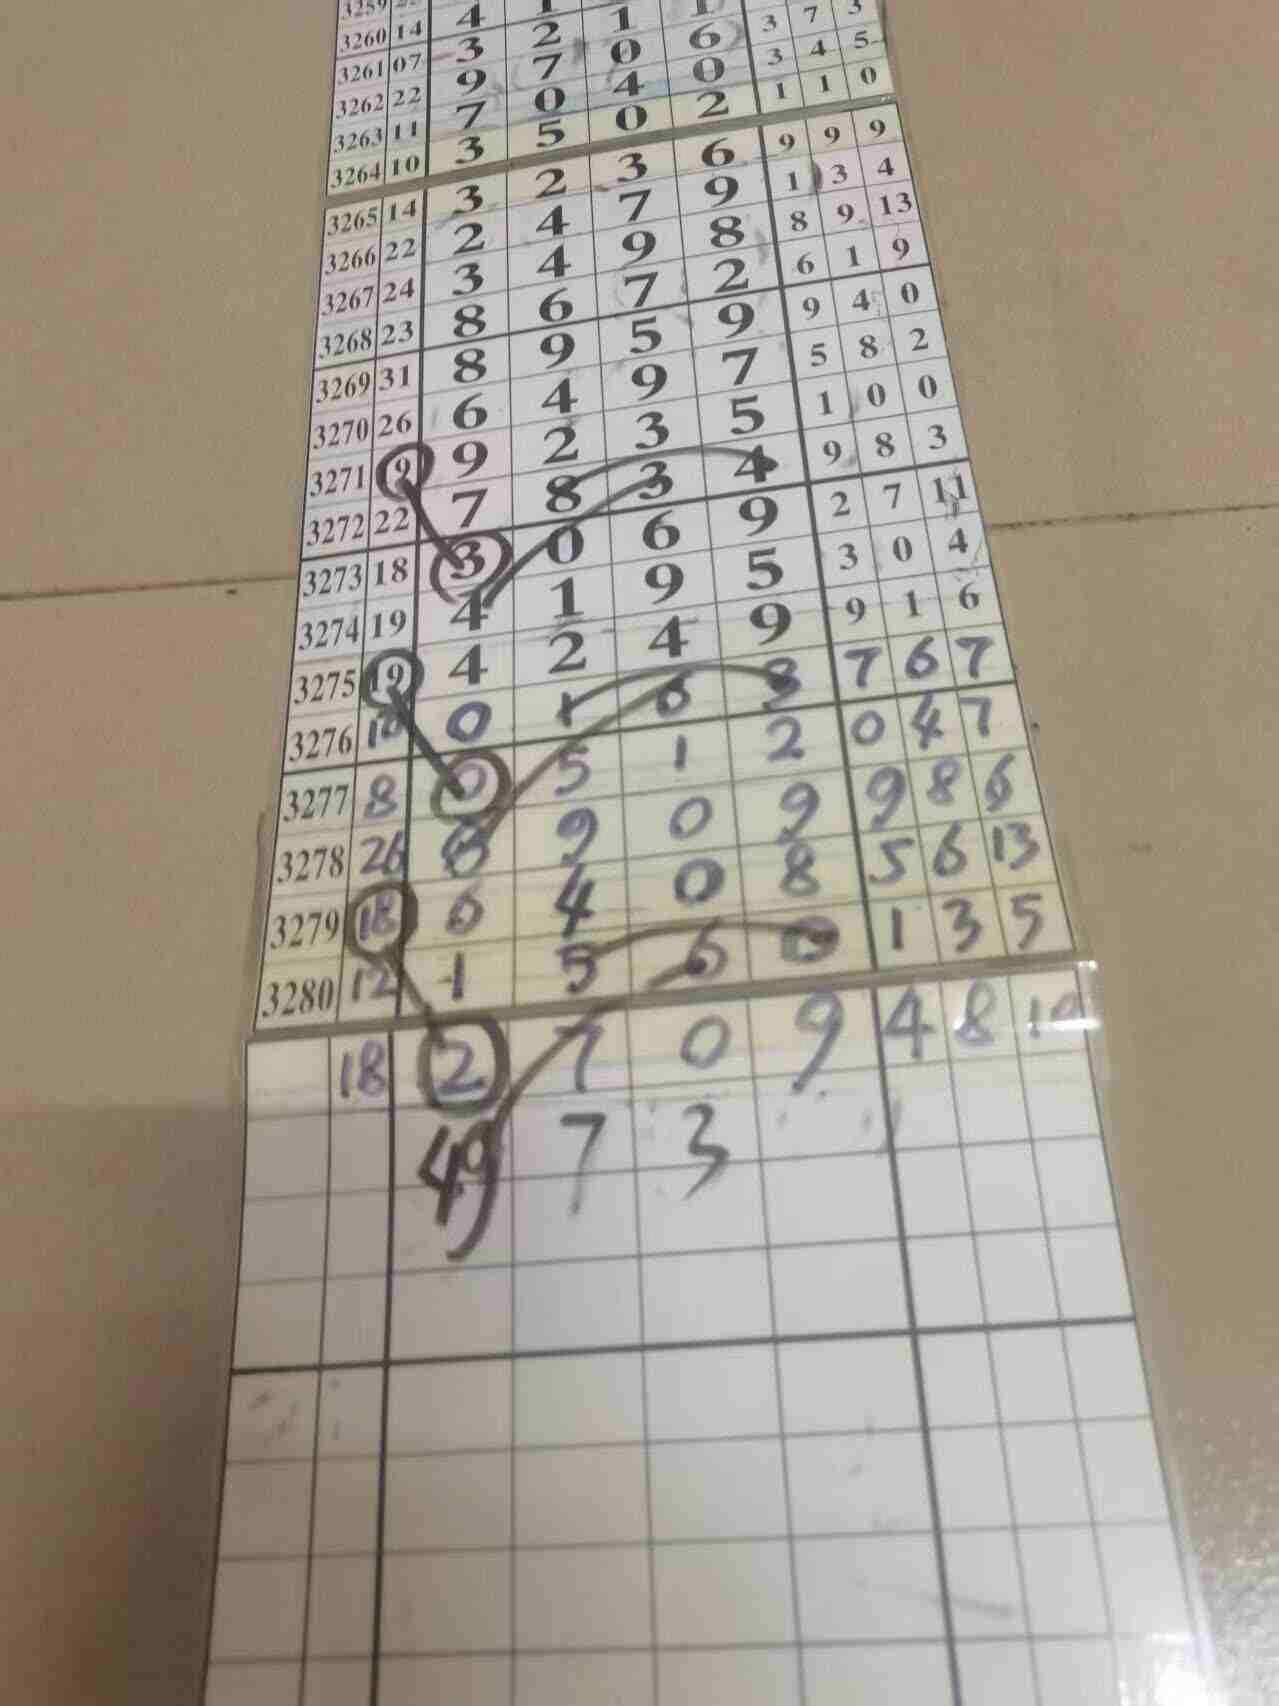 3259
3260 14 4 1
3261 07 3 2 1 1
3262 22 9 7 0 6 3 7 3
3263 11 7 0 4 0 3 4 5
3264 10 3 5 0 2 1 1 0
3265 14 3 2 3 6 9 9 9
3266 22 2 4 7 9 1 3 4
3267 24 3 4 9 8 8 9 13
3268 23 8 6 7 2 6 1 9
3269 31 8 9 5 9 9 4 0
3270 26 6 4 9 7 5 8 2
3271 19 9 2 3 5 1 0 0
3272 22 7 8 3 4 9 8 3
3273 18 3 0 6 9 2 7 11
3274 19 4 1 9 5 3 0 4
3275 19 4 2 4 9 9 1 6
3276 0 1 8 7 6 7
3277 8 0 5 1 2 0 4 7
3278 26 8 9 0 9 9 8 6
3279 18 6 4 0 8 5 6 13
3280 12 1 5 6 0 1 3 5
18 2 7 0 9 4 8 10
49 7 3